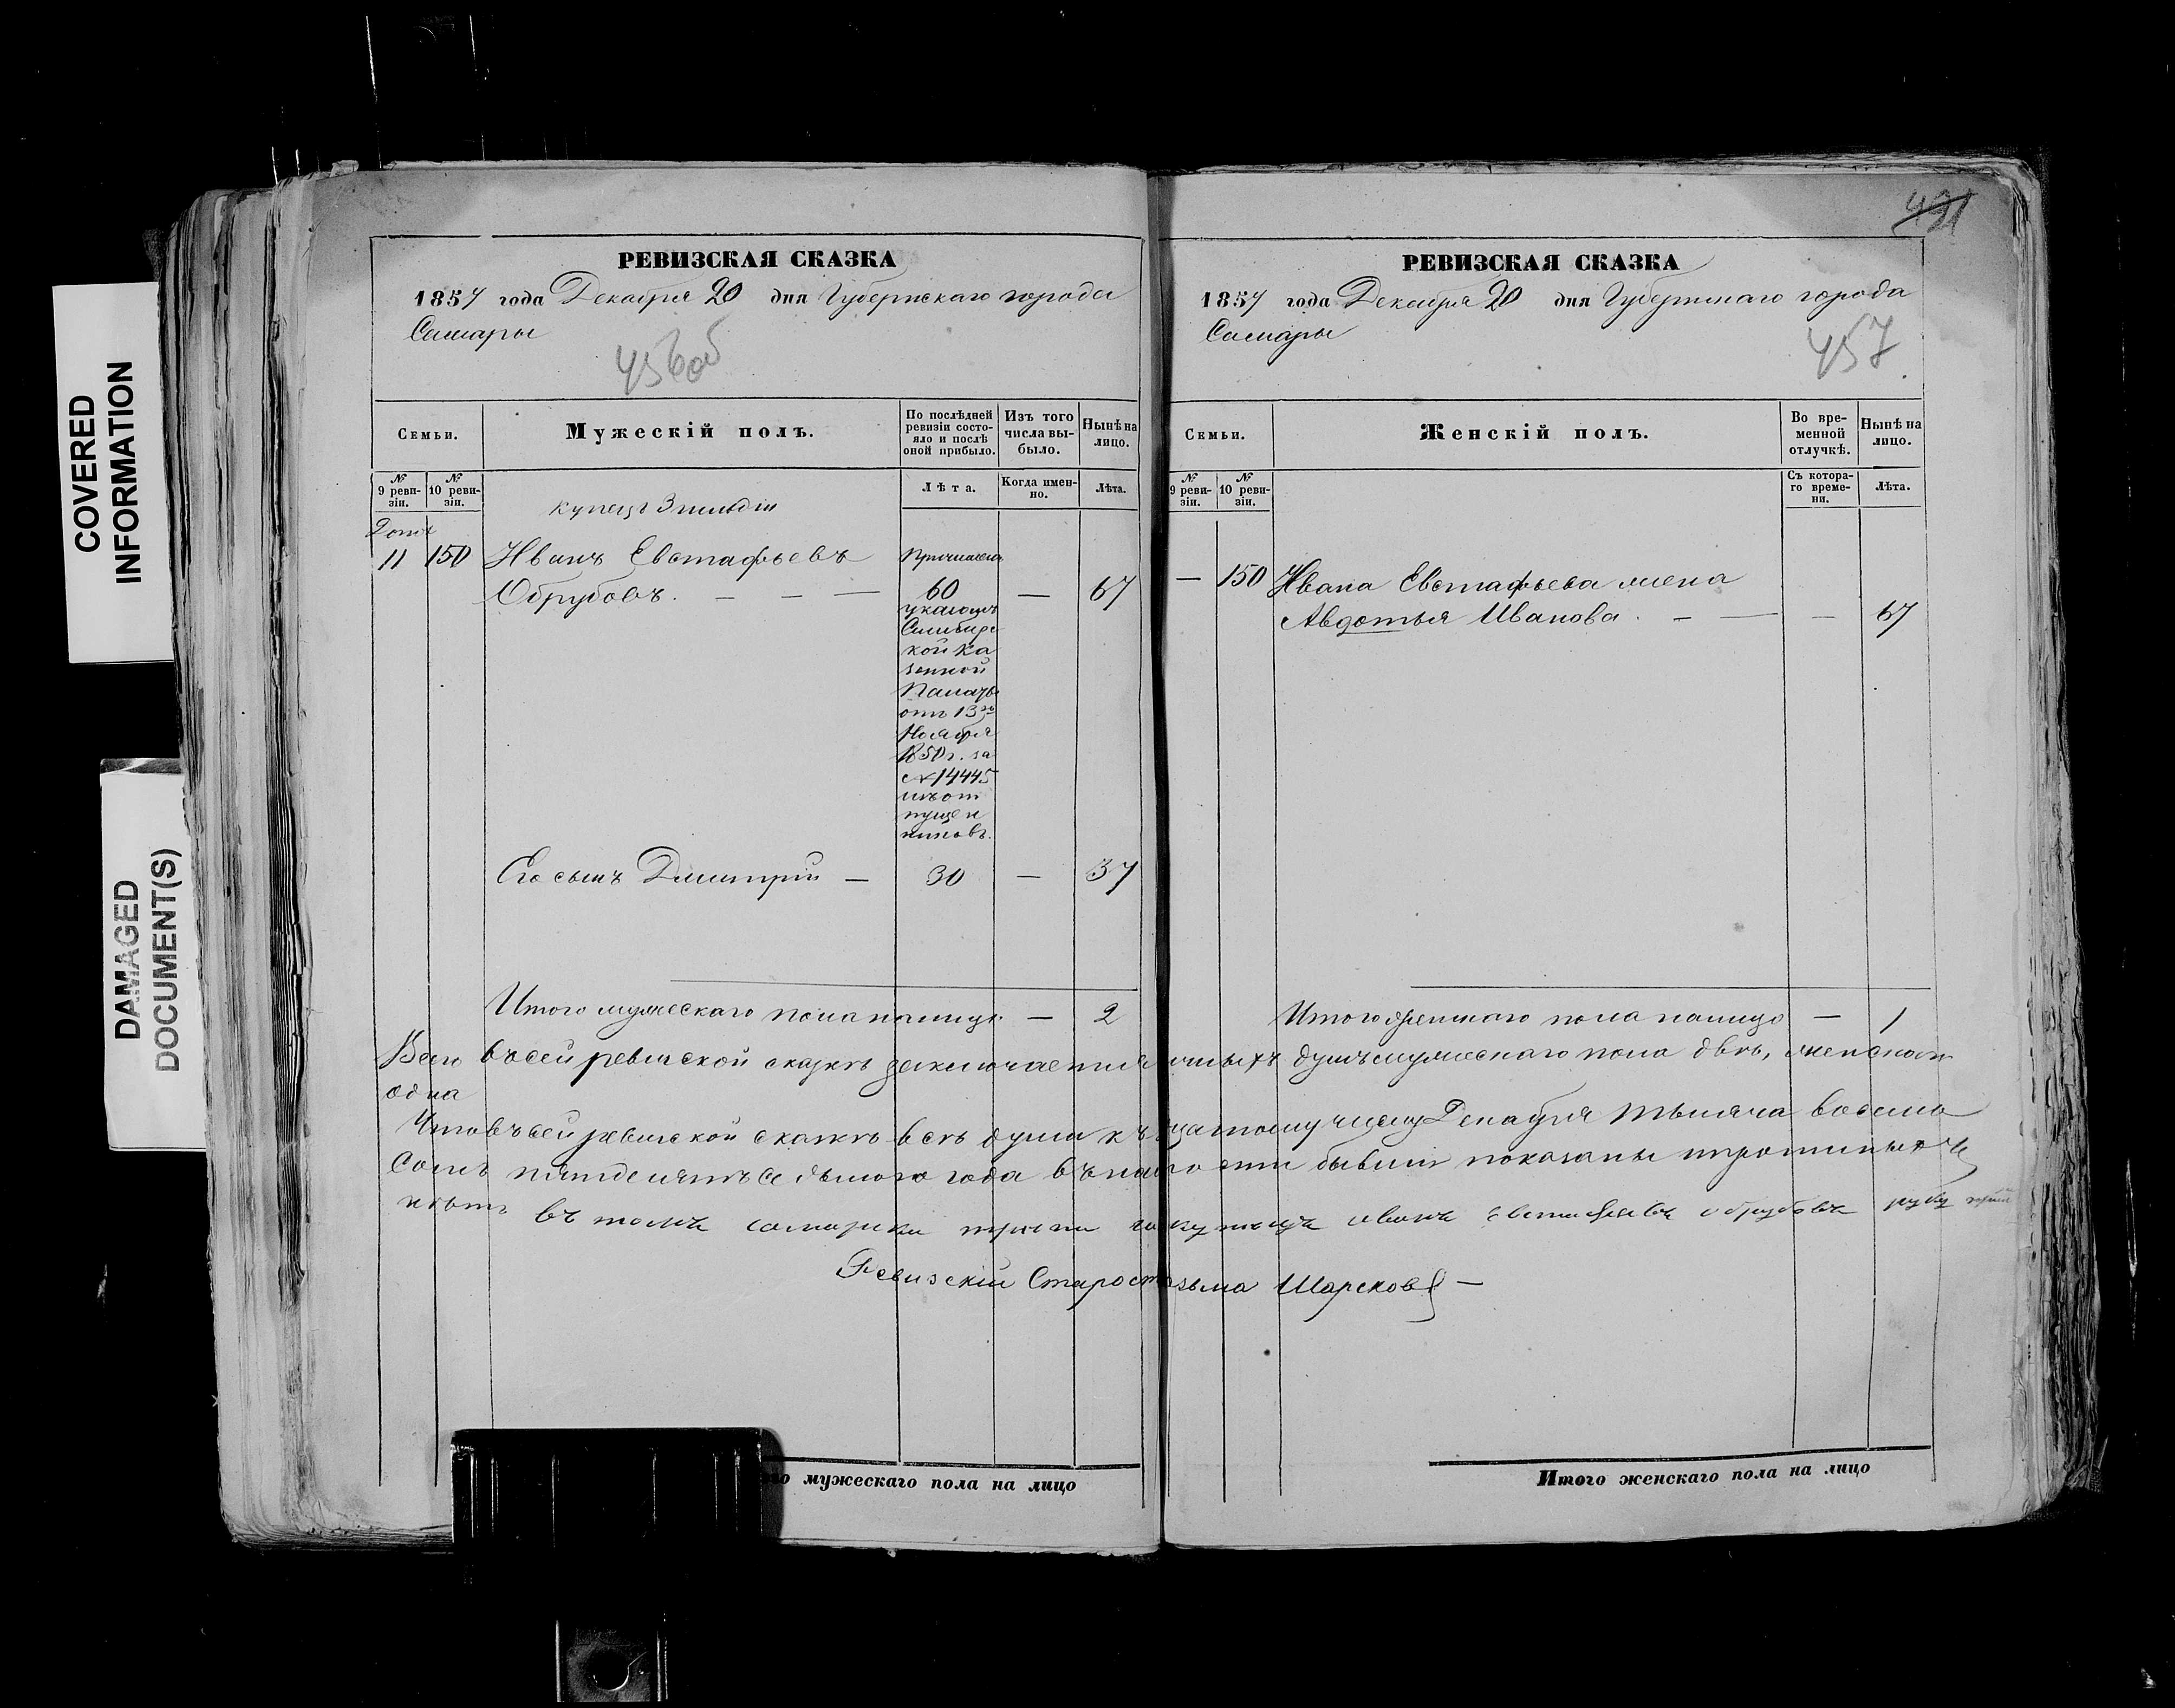 COVERED
INFORMATION
DAMAGED
DOCUMENT(S)
РЕВИЗСКАЯ СКАЗКА
1857 года Декабря 20 дня Губернскаго города
Самары
456об
Семьи.
Мужескій полъ.
По послѣдней
ревизіи состо-
яло и послѣ
оной прибыло.
Изъ того
числа вы-
было.
Нынѣ на
лицо.
№
9 реви-
зіи.
№
10 реви-
зіи.
Лѣта.
Когда имен-
но.
Лѣта.
купецъ 3 гильдіи
11 150 Иванъ Евстафьевъ
Обрубовъ. — — — 60 — 67
Причислен
указомъ
Симбирс
кой Ка
зенной
Палаты
отъ 13го
Ноября
1850 г. за
№ 14445
изъ от
пущен
никовъ.
Его сынъ Дмитрій — 30 — 37
Итого мужескаго пола на лицо — 2
го мужескаго пола на лицо
491
РЕВИЗСКАЯ СКАЗКА
1857 года Декабря 20 дня Губернскаго города
Самары
457
Семьи.
Женскій полъ.
Во вре-
менной
отлучкѣ.
Нынѣ на
лицо.
№
9 реви-
зіи.
№
10 реви-
зіи.
Съ котора-
го време-
ни.
Лѣта.
— 150 Ивана Евстафьева жена
Авдотья Иванова. — — — 67
Итого женскаго пола на лицо — 1
Всего въ сей ревизской сказкѣ заключается душъ мужескаго пола двѣ, женскаго
одна
Что въ сей ревизской сказкѣ всѣ души Декабря тысяча восемь
сотъ пятьдесятъ седьмого года въ бывшіи показаны и прописныхъ
нѣтъ въ томъ купецъ иванъ евстафьевъ обрубовъ руку
Ревизскій Старост зьма Шарсковъ —
Итого женскаго пола на лицо